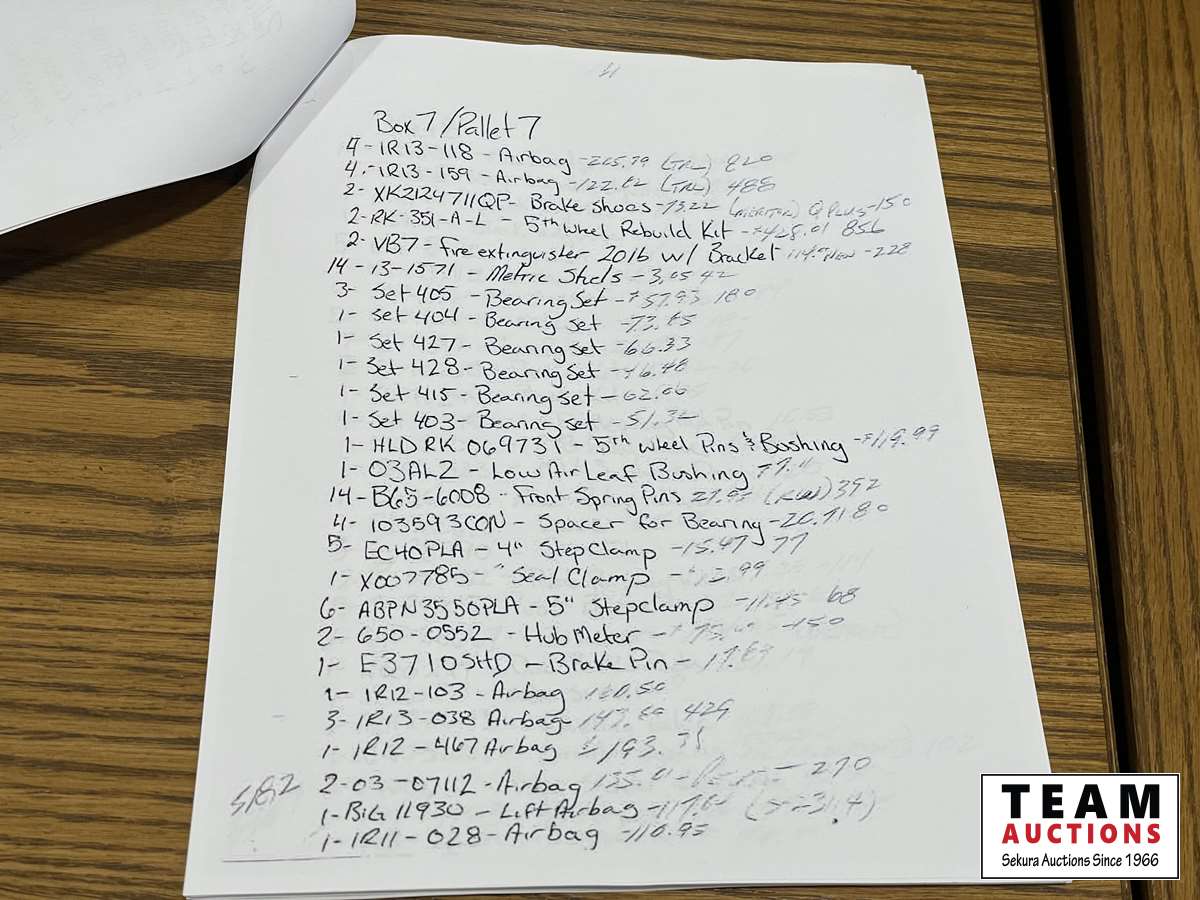 Box 7/Pallet 7
4-1R13-118-Airbag (TRL) 820
4-1R13-159-Airbag -122.82 (TRL) 488
2-XK2124711QP- Brake Shoes-73.22 (MERITOR) Q PLUS-150
2-RK-351-A-L - 5th Wheel Rebuild Kit -$428.01 856
2-VB7-fire extinguister 20lb w/ Bracket -228
14-13-1571-Metric Studs-3.05 42
3- Set 405 -Bearing Set 180
1- Set 404-Bearing Set -73.85
1- Set 427-Bearing Set -66.33
1- Set 428-Bearing Set
1- Set 415-Bearing set
1- Set 403-Bearing set -51.32
1-HLDRK 06973T - 5th wheel Pins & Bushing -$119.99
1-03AL2 - Low Air Leaf Bushing
14-B65-6008-Front Spring Pins 392
4-103593CON-Spacer for Bearing 80
5- EC40PLA - 4" StepClamp -15.47 77
1-X007785- " Seal Clamp
6- ABPN3550PLA - 5" Stepclamp 68
2- 650-0552 -Hub Meter -150
1- E3710SHD -Brake Pin
1-1R12-103-Airbag 160.50
3-1R13-038 Airbag 429
1-1R12-467 Airbag
2-03-07112-Airbag 270
1-BiG 11930 - Lift Airbag
1-1R11-028-Airbag -110.95
5182
TEAM
AUCTIONS
Sekura Auctions Since 1966